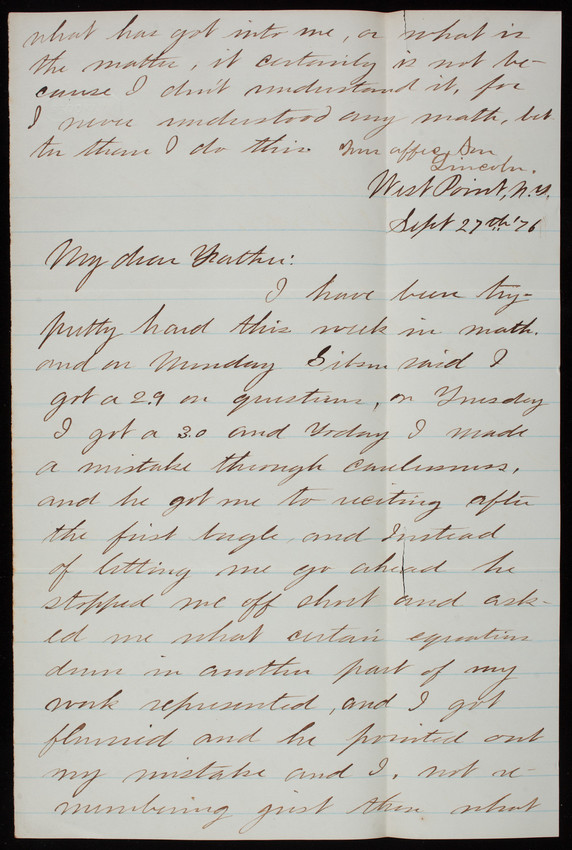 what has got into me, or what is
the matter, it certainly is not be-
cause I don't understand it, for
I never understood any math, bet-
ter than I do this. Your affec. Son
Lincoln.
West Point, N.Y.
Sept 27th '76
My dear Father:
I have been try-
pretty hard this week in math.
and on Monday Gibson said I
got a 2.9 on questions, on Tuesday
I got a 3.0 and Today I made
a mistake through carelessness,
and he got me to reciting after
the first bugle, and Instead
of letting me go ahead he
stopped me off short and ask-
ed me what certain equations
down in another part of my
work represented, and I got
flurried and he pointed out
my mistake and I, not re-
membering just then what